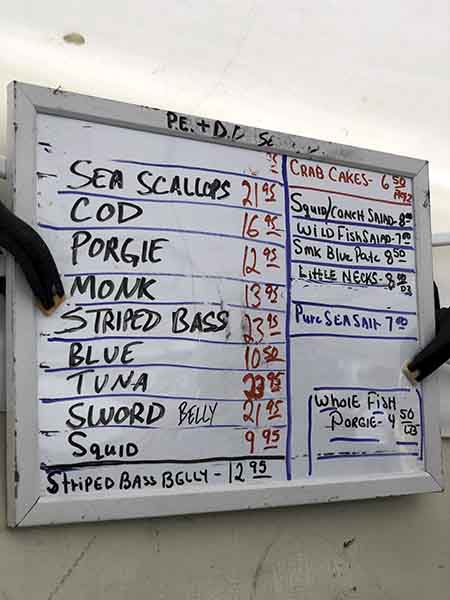 P.E. + D.D. SE
SEA SCALLOPS 21 95
COD 16 95
PORGIE 12 95
MONK 13 95
STRIPED BASS 23 95
BLUE 10 50
TUNA 23 95
SWORD BELLY 21 95
SQUID 9 95
STRIPED BASS BELLY - 12 95
CRAB CAKES - 6 50
SQUID/CONCH SALAD - 8 00
WILD FISH SALAD - 7 00
SMK BLUE PATE 8 50
LITTLE NECKS - 8 00
PURE SEA SALT 7 00
WHOLE FISH
PORGIE - 4 50